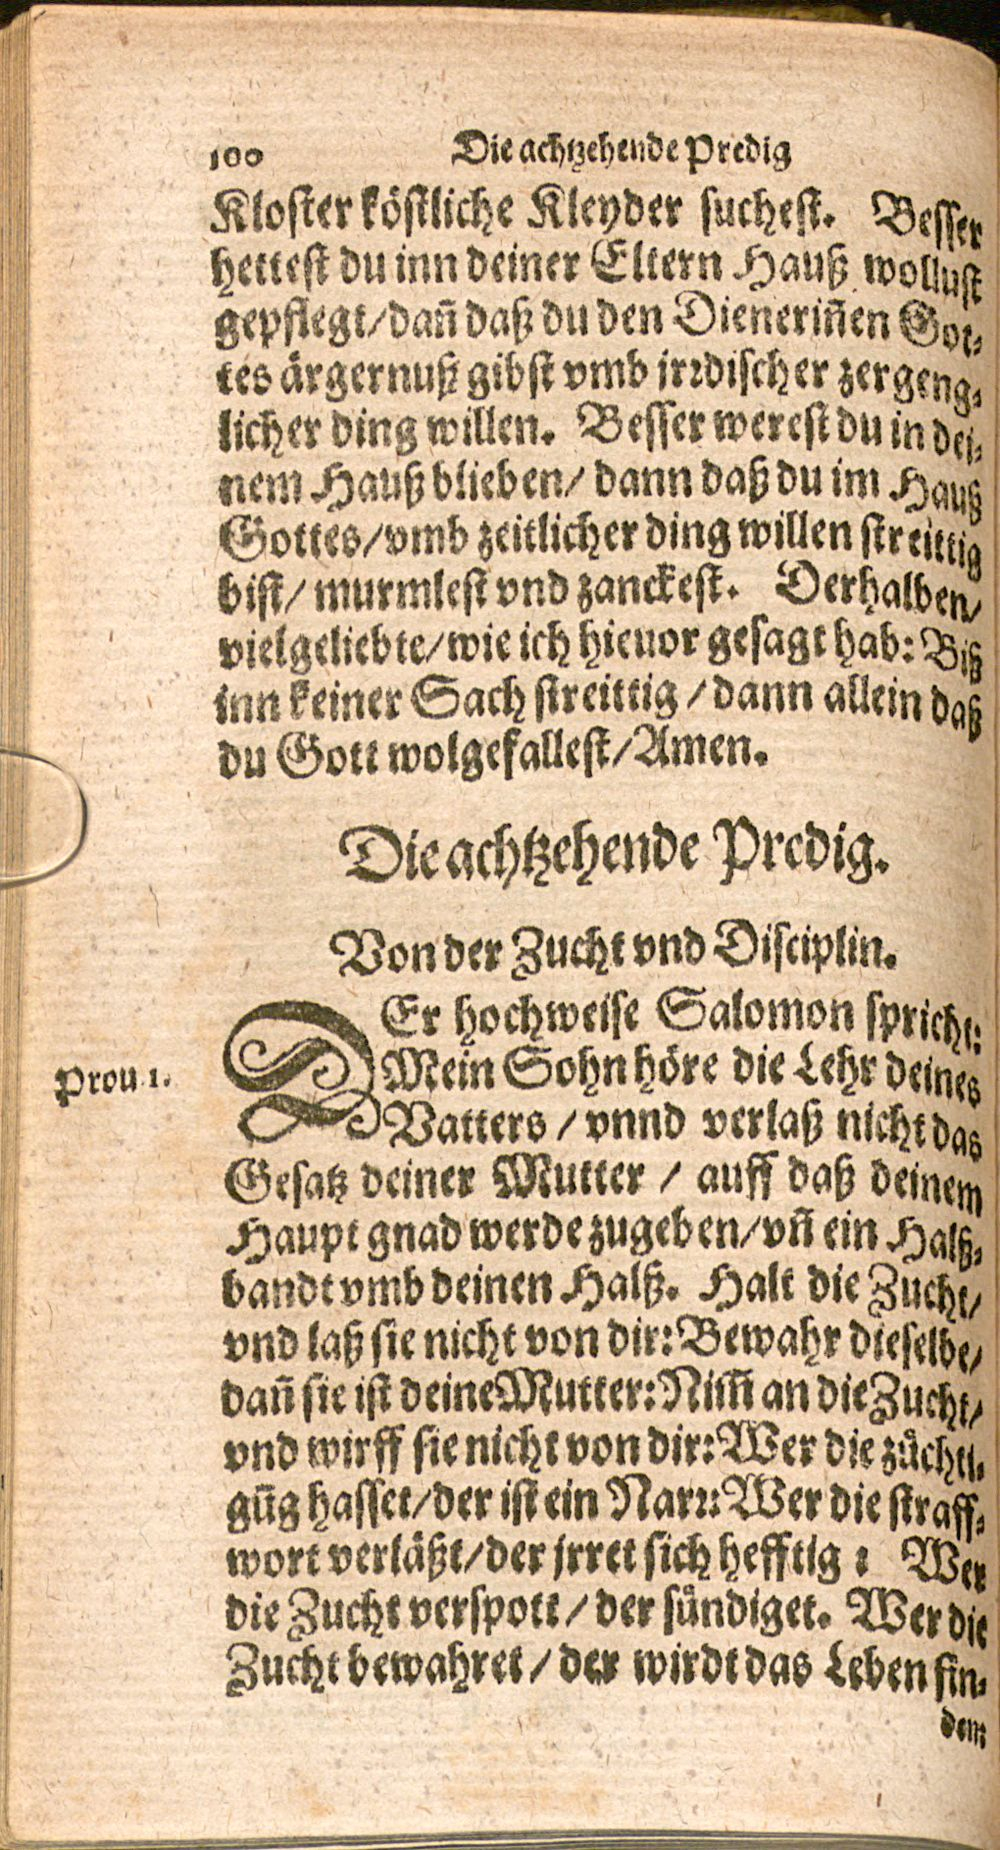 100 Die achtzehende Predig
Kloster köstliche Kleyder suchest. Besser
hettest du inn deiner Eltern Hauß wollust
gepflegt/dañ daß du den Dieneriñen Got-
tes ärgernuß gibst vmb jrrdischer zergeng-
licher ding willen. Besser werest du in dei-
nem Hauß blieben/ dann daß du im Hauß
Gottes/vmb zeitlicher ding willen streittig
bist/ murmlest vnd zanckest. Derhalben/
vielgeliebte/wie ich hieuor gesagt hab: Biß
inn keiner Sach streittig / dann allein daß
du Gott wolgefallest/Amen.
Die achtzehende Predig.
Von der Zucht vnd Disciplin.
DEr hochweise Salomon spricht:
Prou. 1. Mein Sohn höre die Lehr deines
Vatters / vnnd verlaß nicht das
Gesatz deiner Mutter / auff daß deinem
Haupt gnad werde zugeben/vñ ein Halß-
bandt vmb deinen Halß. Halt die Zucht/
vnd laß sie nicht von dir: Bewahr dieselbe/
dañ sie ist deine Mutter: Nim̃ an die Zucht/
vnd wirff sie nicht von dir: Wer die zůchti-
gũg hasset/der ist ein Narr: Wer die straff-
wort verläßt/der jrret sich hefftig : Wer
die Zucht verspott / der sündiget. Wer die
Zucht bewahret / der wirdt das Leben fin-
den: